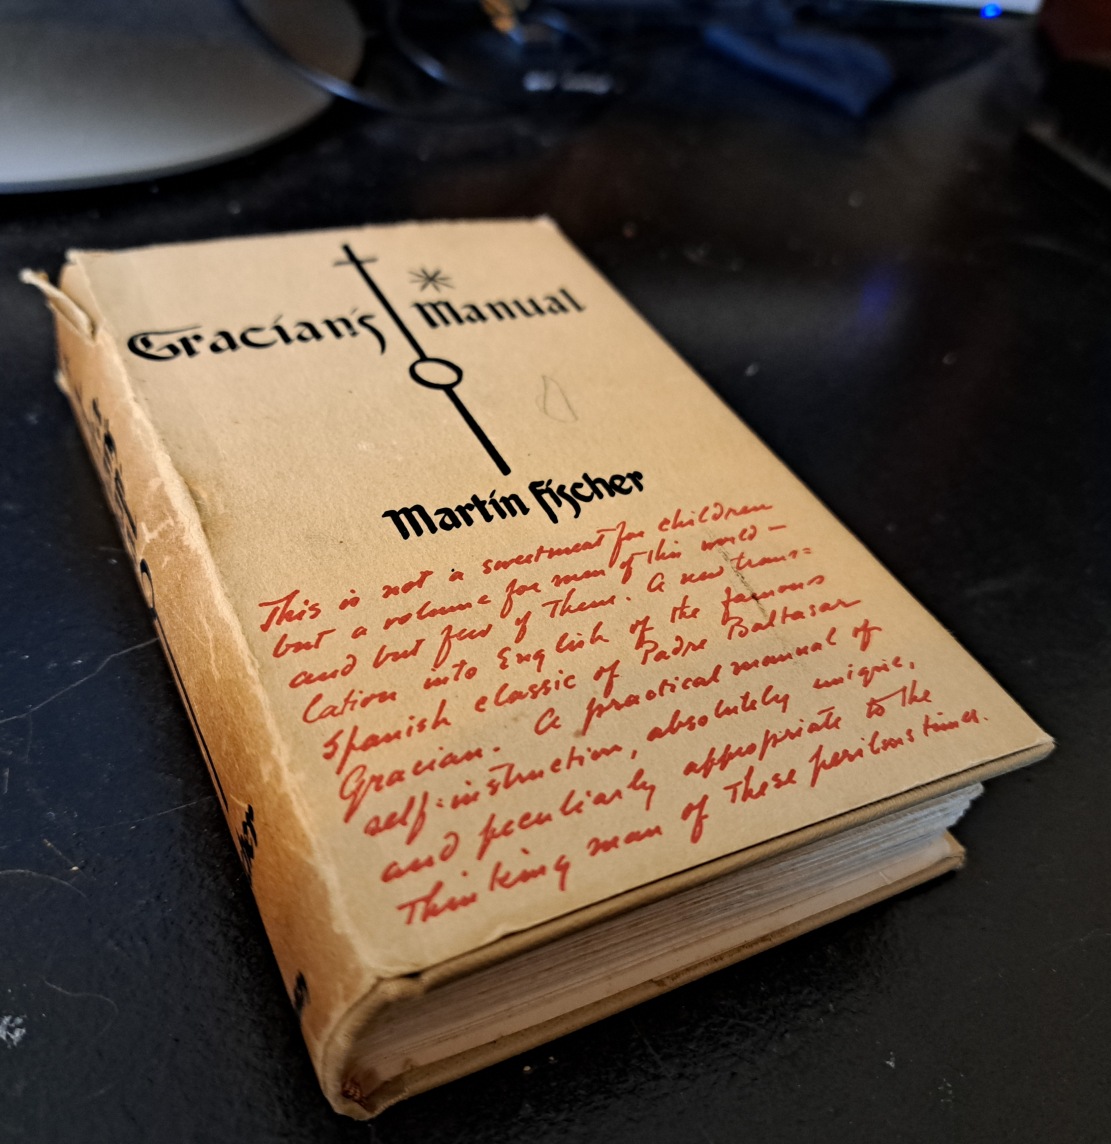 Gracian's Manual
Martin Fischer
This is not a sweetmeat for children
but a volume for men of this world —
and but few of them. A new trans=
lation into English of the famous
Spanish classic of Padre Baltasar
Gracian. A practical manual of
self=instruction, absolutely uniqie,
and peculiarly appropriate to the
thinking man of these perilous times.